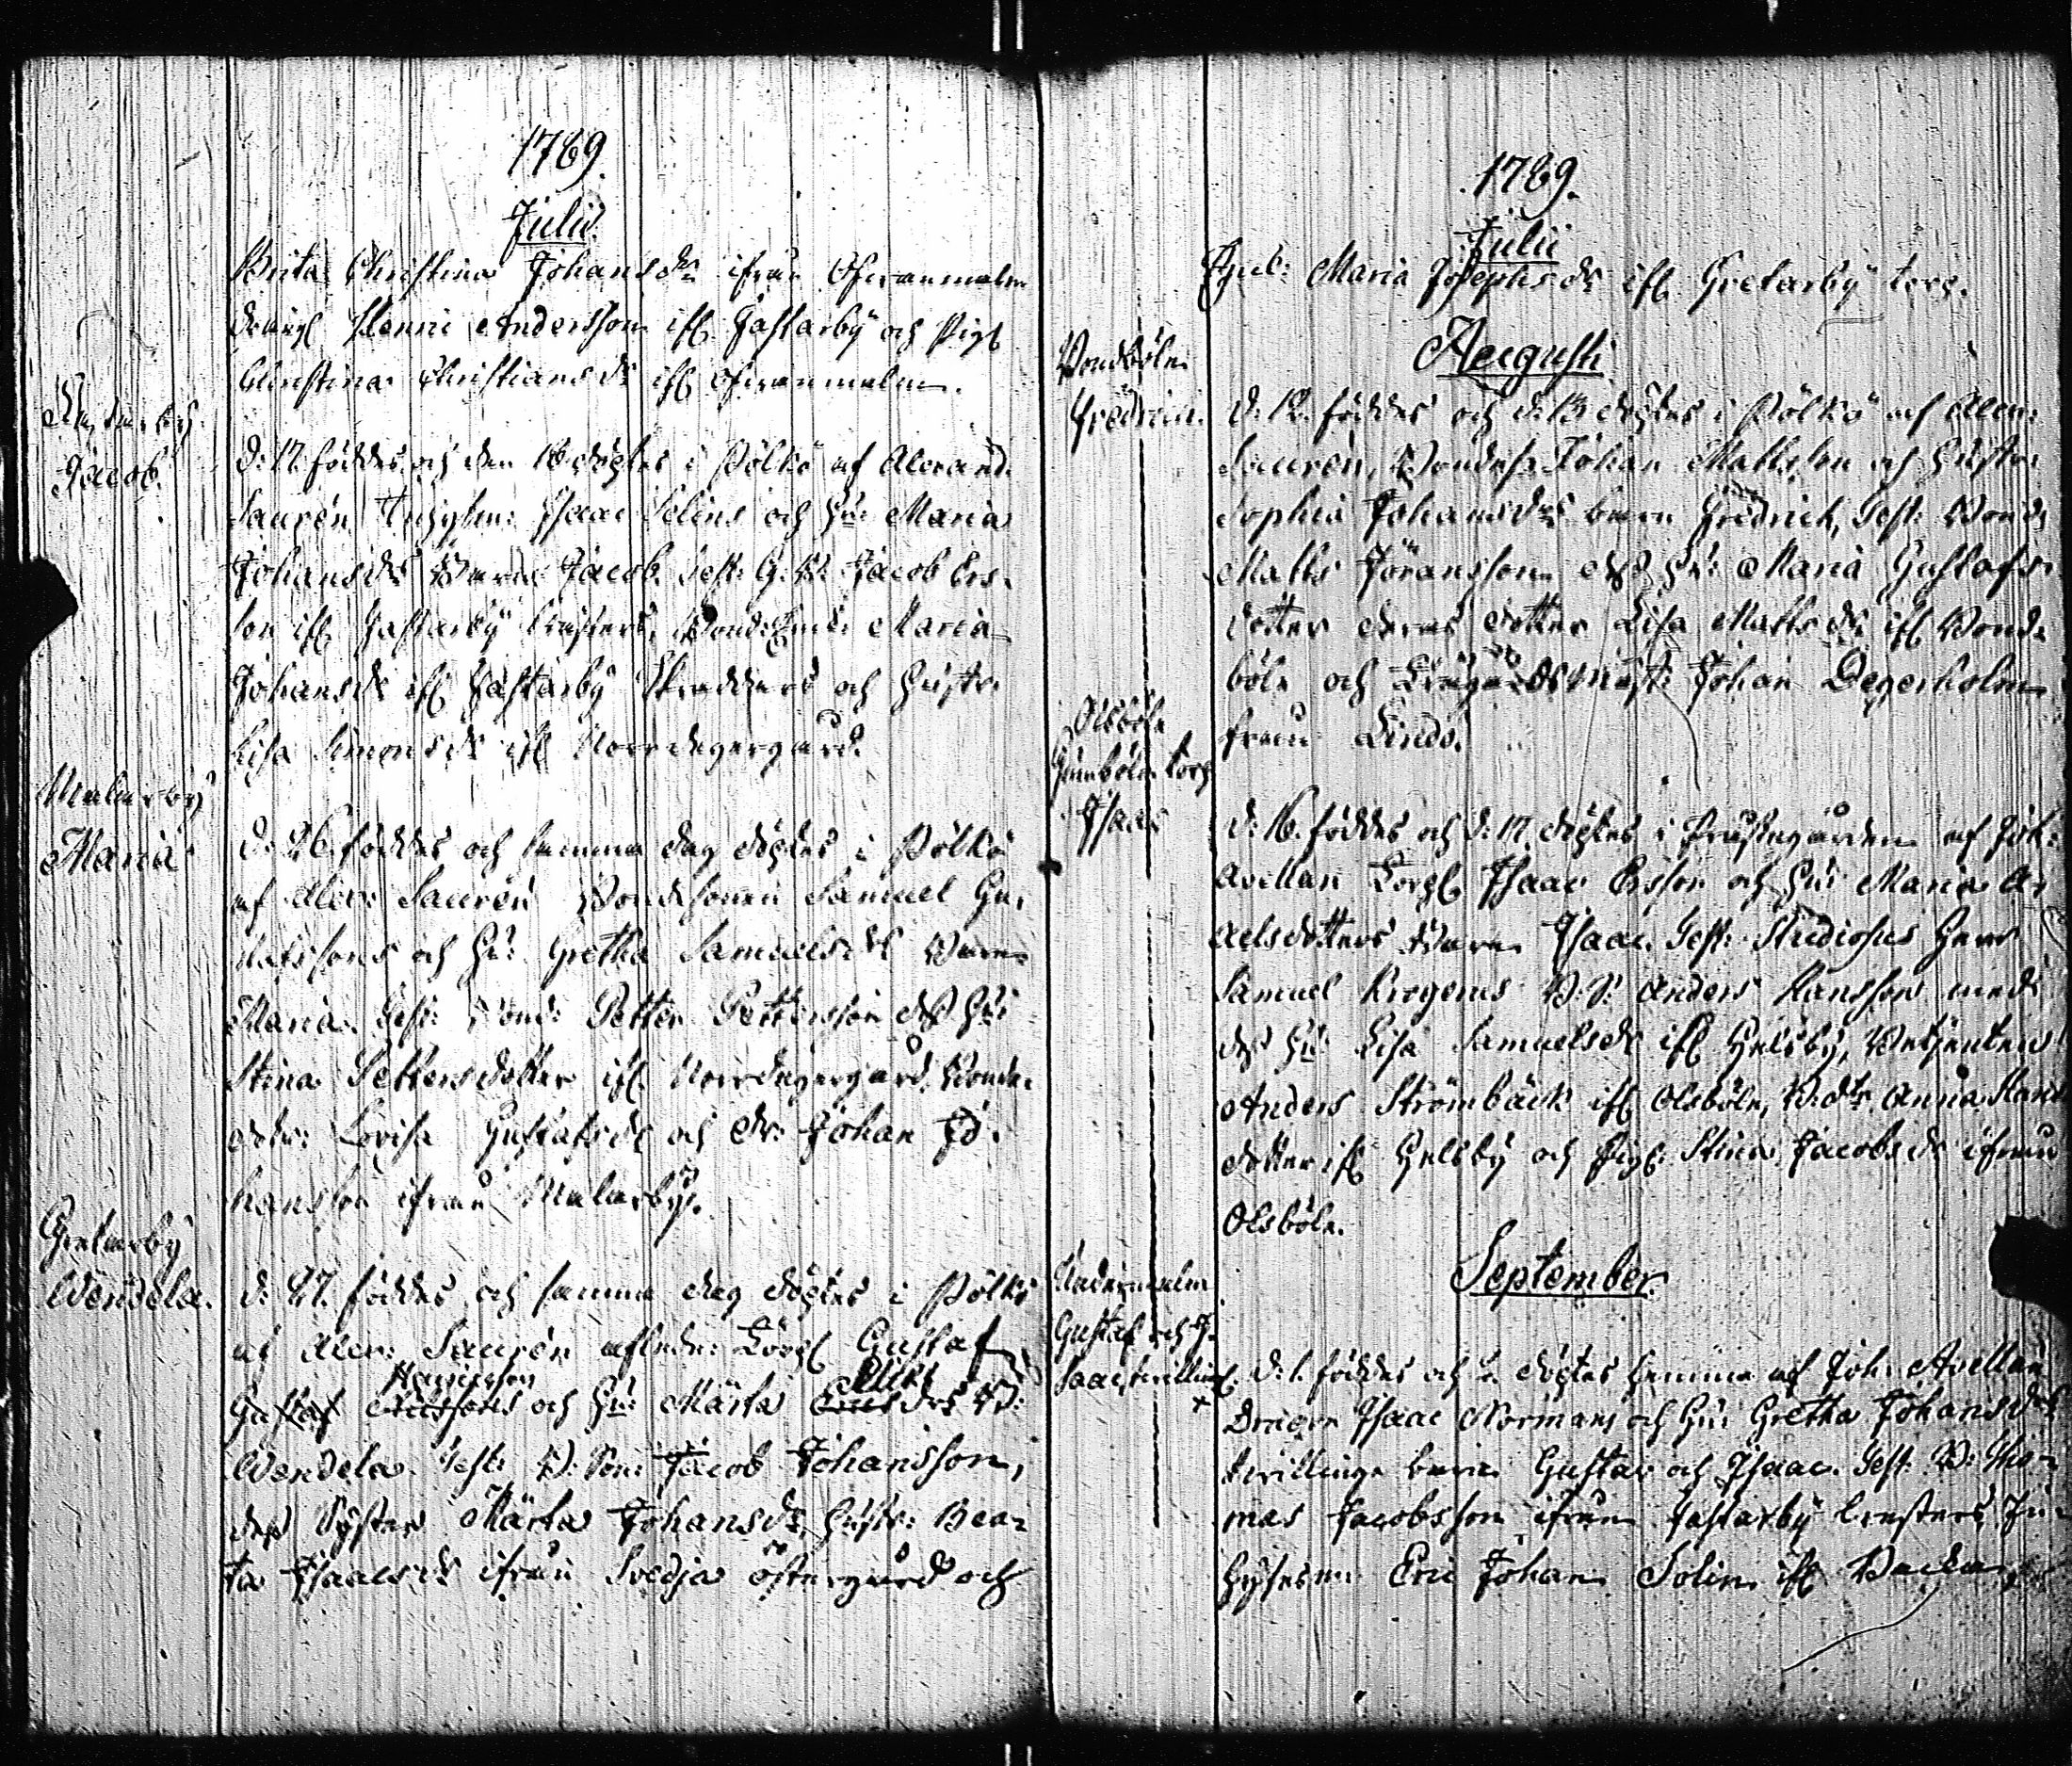 1789.
Julii
Brita Christina Johansdr ifrån Öfvanmalm
drängl Henric Andersson ifl Gastarby och Pigl
Christina Christiansdr ifl Öfvanmalm.
Gastarby
Jacob.
d: 17. föddes och den 18 döptes i Pölkö af Alexand.
Laurén Inhyses: Isaac Selins och Hu: Maria
Johansdrs Barn Jacob. Test: G: B: Jacob Ers-
son ifl Gastarby Knifters, Bond: Enk: Maria
Johansdr ifl Gastarby Skredders och Hustr.
Lisa Simonsdr ifl Norrdegergård.
Malarby
Maria
d: 26. föddes och samma dag döptes i Pölkö
af Alex: Laurén Bondesonen Samuel Gu-
stafssons och Hu: Gretha Samuelsdrs Barn
Maria. Test: Bond: Petter Pettersson dess Hu:
Stina Pettersdotter ifl Norrdegergård, Bonde
dotr: Lovisa Gustafsdr och Dr: Johan Jo-
hansson ifrån Malarby.
Gretarby
Wendela.
d: 27. föddes och samma dag döptes i Pölkö
af Alex: Laurén afledn: Torpl Gustaf
Henricsson
Gustaf Ericssons och Hu: Märta Ericsdrs B:
Wendela. Test: B: Son: Jacob Johansson,
dess Syster Märta Johansdr, Hustr: Bea-
ta Isaacsdr ifrån Svedja östergård och
1789.
Julii
Maria Josephsdr ifl Gretarby torp.
Augusti
Bondböle
Fredrich.
d: 12. föddes och d: 13. döptes i Pölkö af Alex:
Laurén, Bondens Johan Mattsson och Hustr:
Sophia Johansdrs barn Fredrich, Test: Bond:
Matts Jöransson dess Hu: Maria Gustafs-
dotter deras dotter Lisa Mattsdr ifl Bond-
böle och Johan Degerholm
från Lindö.
Olsböle
Gumböle torp
Isaac
d: 16. föddes och d: 17. döptes i Prästegården af Joh:
Avellan Torpl Isaac Ersson och Hu: Maria A-
aelsdotters Barn Isaac. Test: Studiosus Herr
Samuel Krogerus B: S: Anders Hansson med
dess Hu: Lisa Samuelsdr ifl Gelsby, Betjenten
Anders Strömbäck ifl Olsböle, B: dtr Anna Hans
dotter ifl Gelsby och Pigl: Stina Jacobsdr ifrån
Olsböle.
September.
Nedermalm
Gustaf och I-
saac, tvilling.
d: 1. föddes och 2. döptes hemma af Joh: Avellan
Dragon Isaac Normans och Hu: Gretha Johansdrs
tvillinge barn Gustav och Isaac. Test: B: Tho-
mas Jacobsson ifrån Gastarby Knifters, In-
hyses: Eric Johan Solin ifl Backa